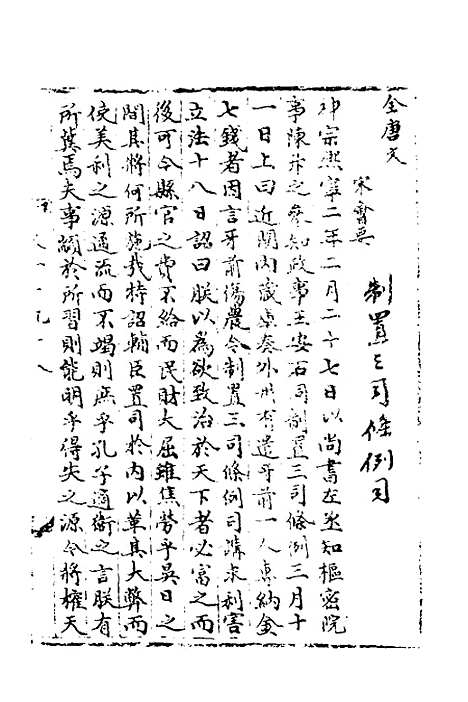 全唐文
宋會要
制置三司條例司
神宗熙寧二年二月二十七日以尚書左丞知樞密院
事陳升之參知政事王安石同制置三司條例三月十
一日上曰近閱內藏庫奏外州有遣牙前一人專納金
七錢者因言牙前傷農令制置三司條例司講求利害
立法十八日詔曰朕以為欲致治於天下者必富之而
後可今縣官之費不給而民財大屈雖焦勞乎昃日之
間其將何所施哉特詔輔臣置司於內以革其大弊而
使美利之源通流而不竭則庶乎孔子適衛之言朕有
所冀焉夫事顓於所習則能明乎得失之源令將權天